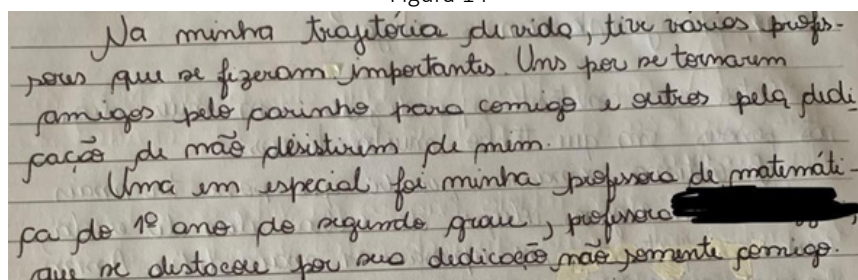 Na minha trajetória de vida, tive vários profes-
sores que se fizeram importantes. Uns por se tornarem
amigos pelo carinho para comigo e outros pela dedi
cação de não desistirem de mim.
Uma em especial foi minha professora de matemáti-
ca do 1º ano do segundo grau, professora
que se destacou por sua dedicação não somente comigo.